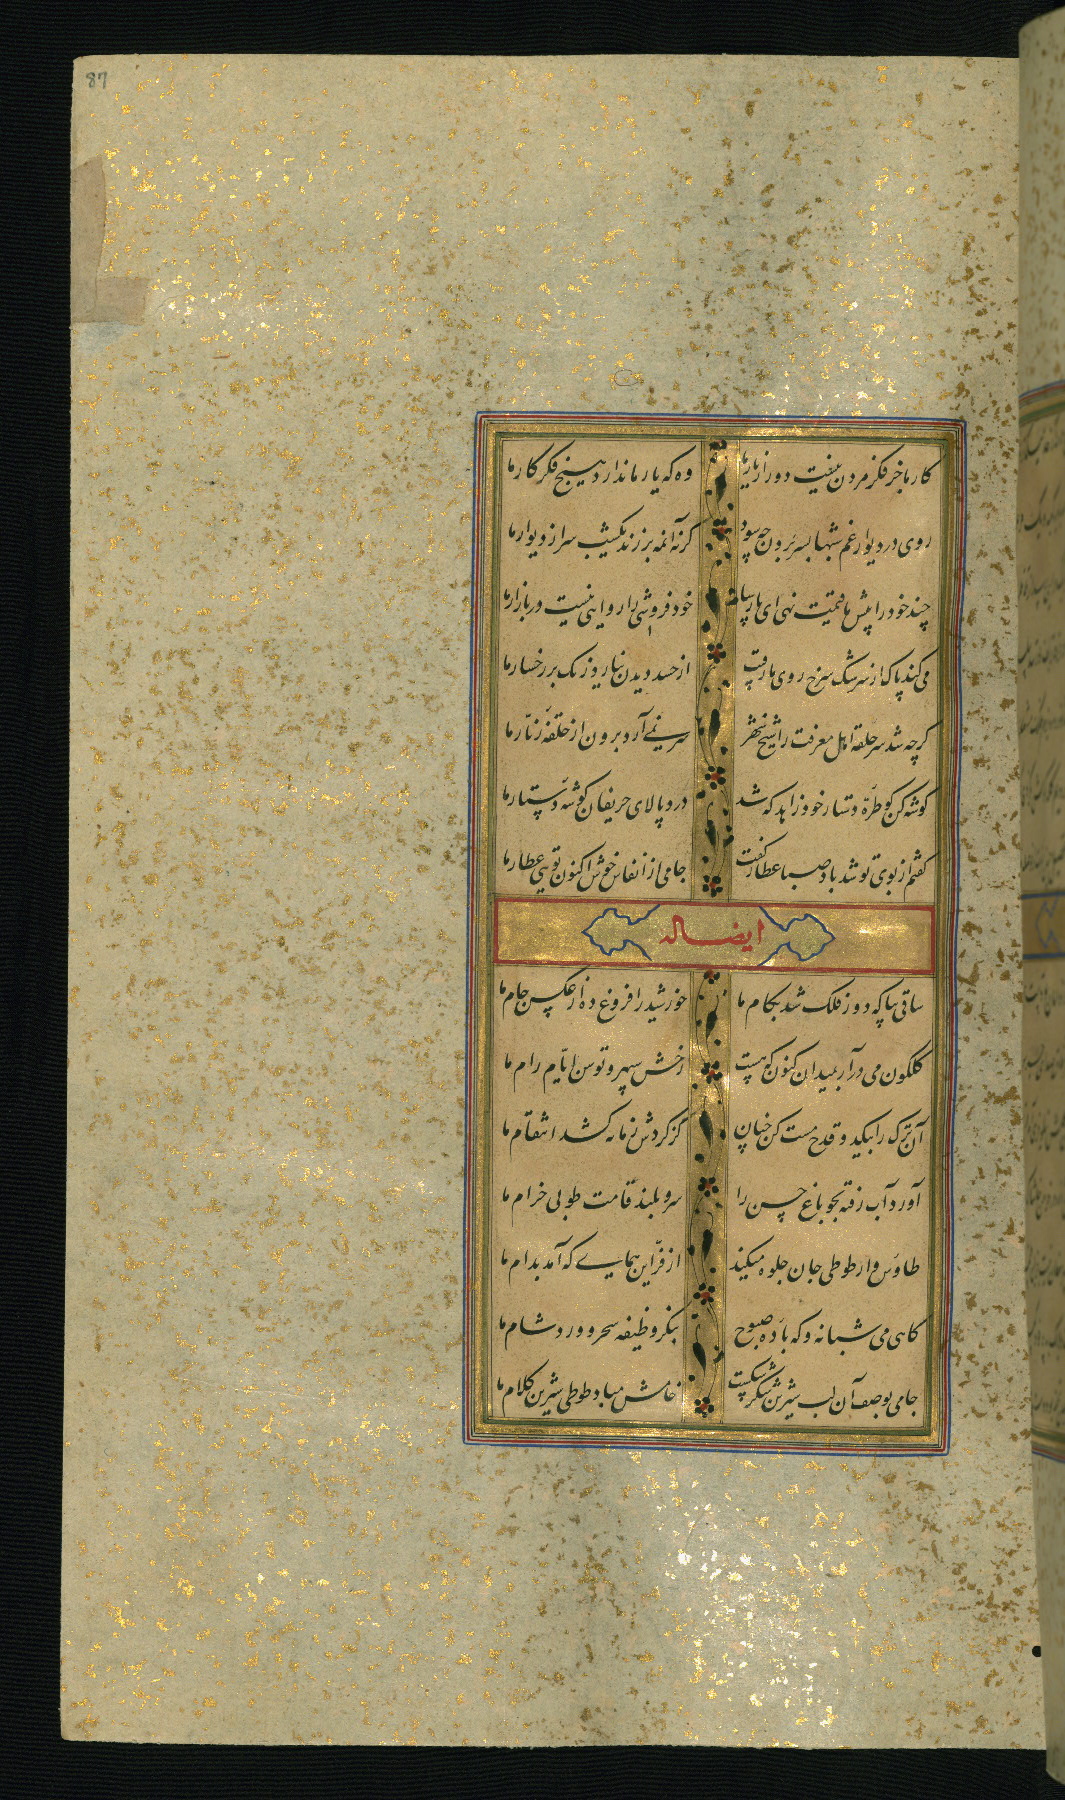 87
کار ما جز فکر مردن نیست دور از یار ما وه که یار ما ندارد هیچ فکر کار ما
روی در دیوار غم شبها بسر بردن چه سود گر نه آن مه برزند یک شب سر از دیوار ما
چند خود را پیش ما قیمت نهی ای پارسا خود فروشی را روایی نیست در بازار ما
می کند پاک از سرشک سرخ روی ما رقیب از حسد دیدن نیارد رنگ بر رخسار ما
گرچه شد سر حلقه اهل معرفت را شیخ شهر سر نمی آرد برون از حلقه زنار ما
گوشه کن کو طره دستار خود زاهد که شد درد پالای حریفان گوشه دستار ما
گفتم از بوی تو شد باد صبا عطار گفت جامی از انفاس خوش اکنون تویی عطار ما
ایضا له
ساقی بیا که دور فلک شد بکام ما خورشید را فروغ ده از عکس جام ما
گلگون می در آر بمیدان کنون که هست رخش سپهر و توسن ایام رام ما
آن ترک را بیک دو قدح مست کن چنان کز گردش زمانه کشد انتقام ما
آورد آب رفته بجو باغ حسن را سرو بلند قامت طوبی خرام ما
طاوس وار طوطی جان جلوه میکند از فر این همایی که آمد بدام ما
گاهی می شبانه و گه باده صبوح بنگر وظیفه سحر و ورد شام ما
جامی بوصف آن لب شیرین شکر شکست خامش مباد طوطی شیرین کلام ما